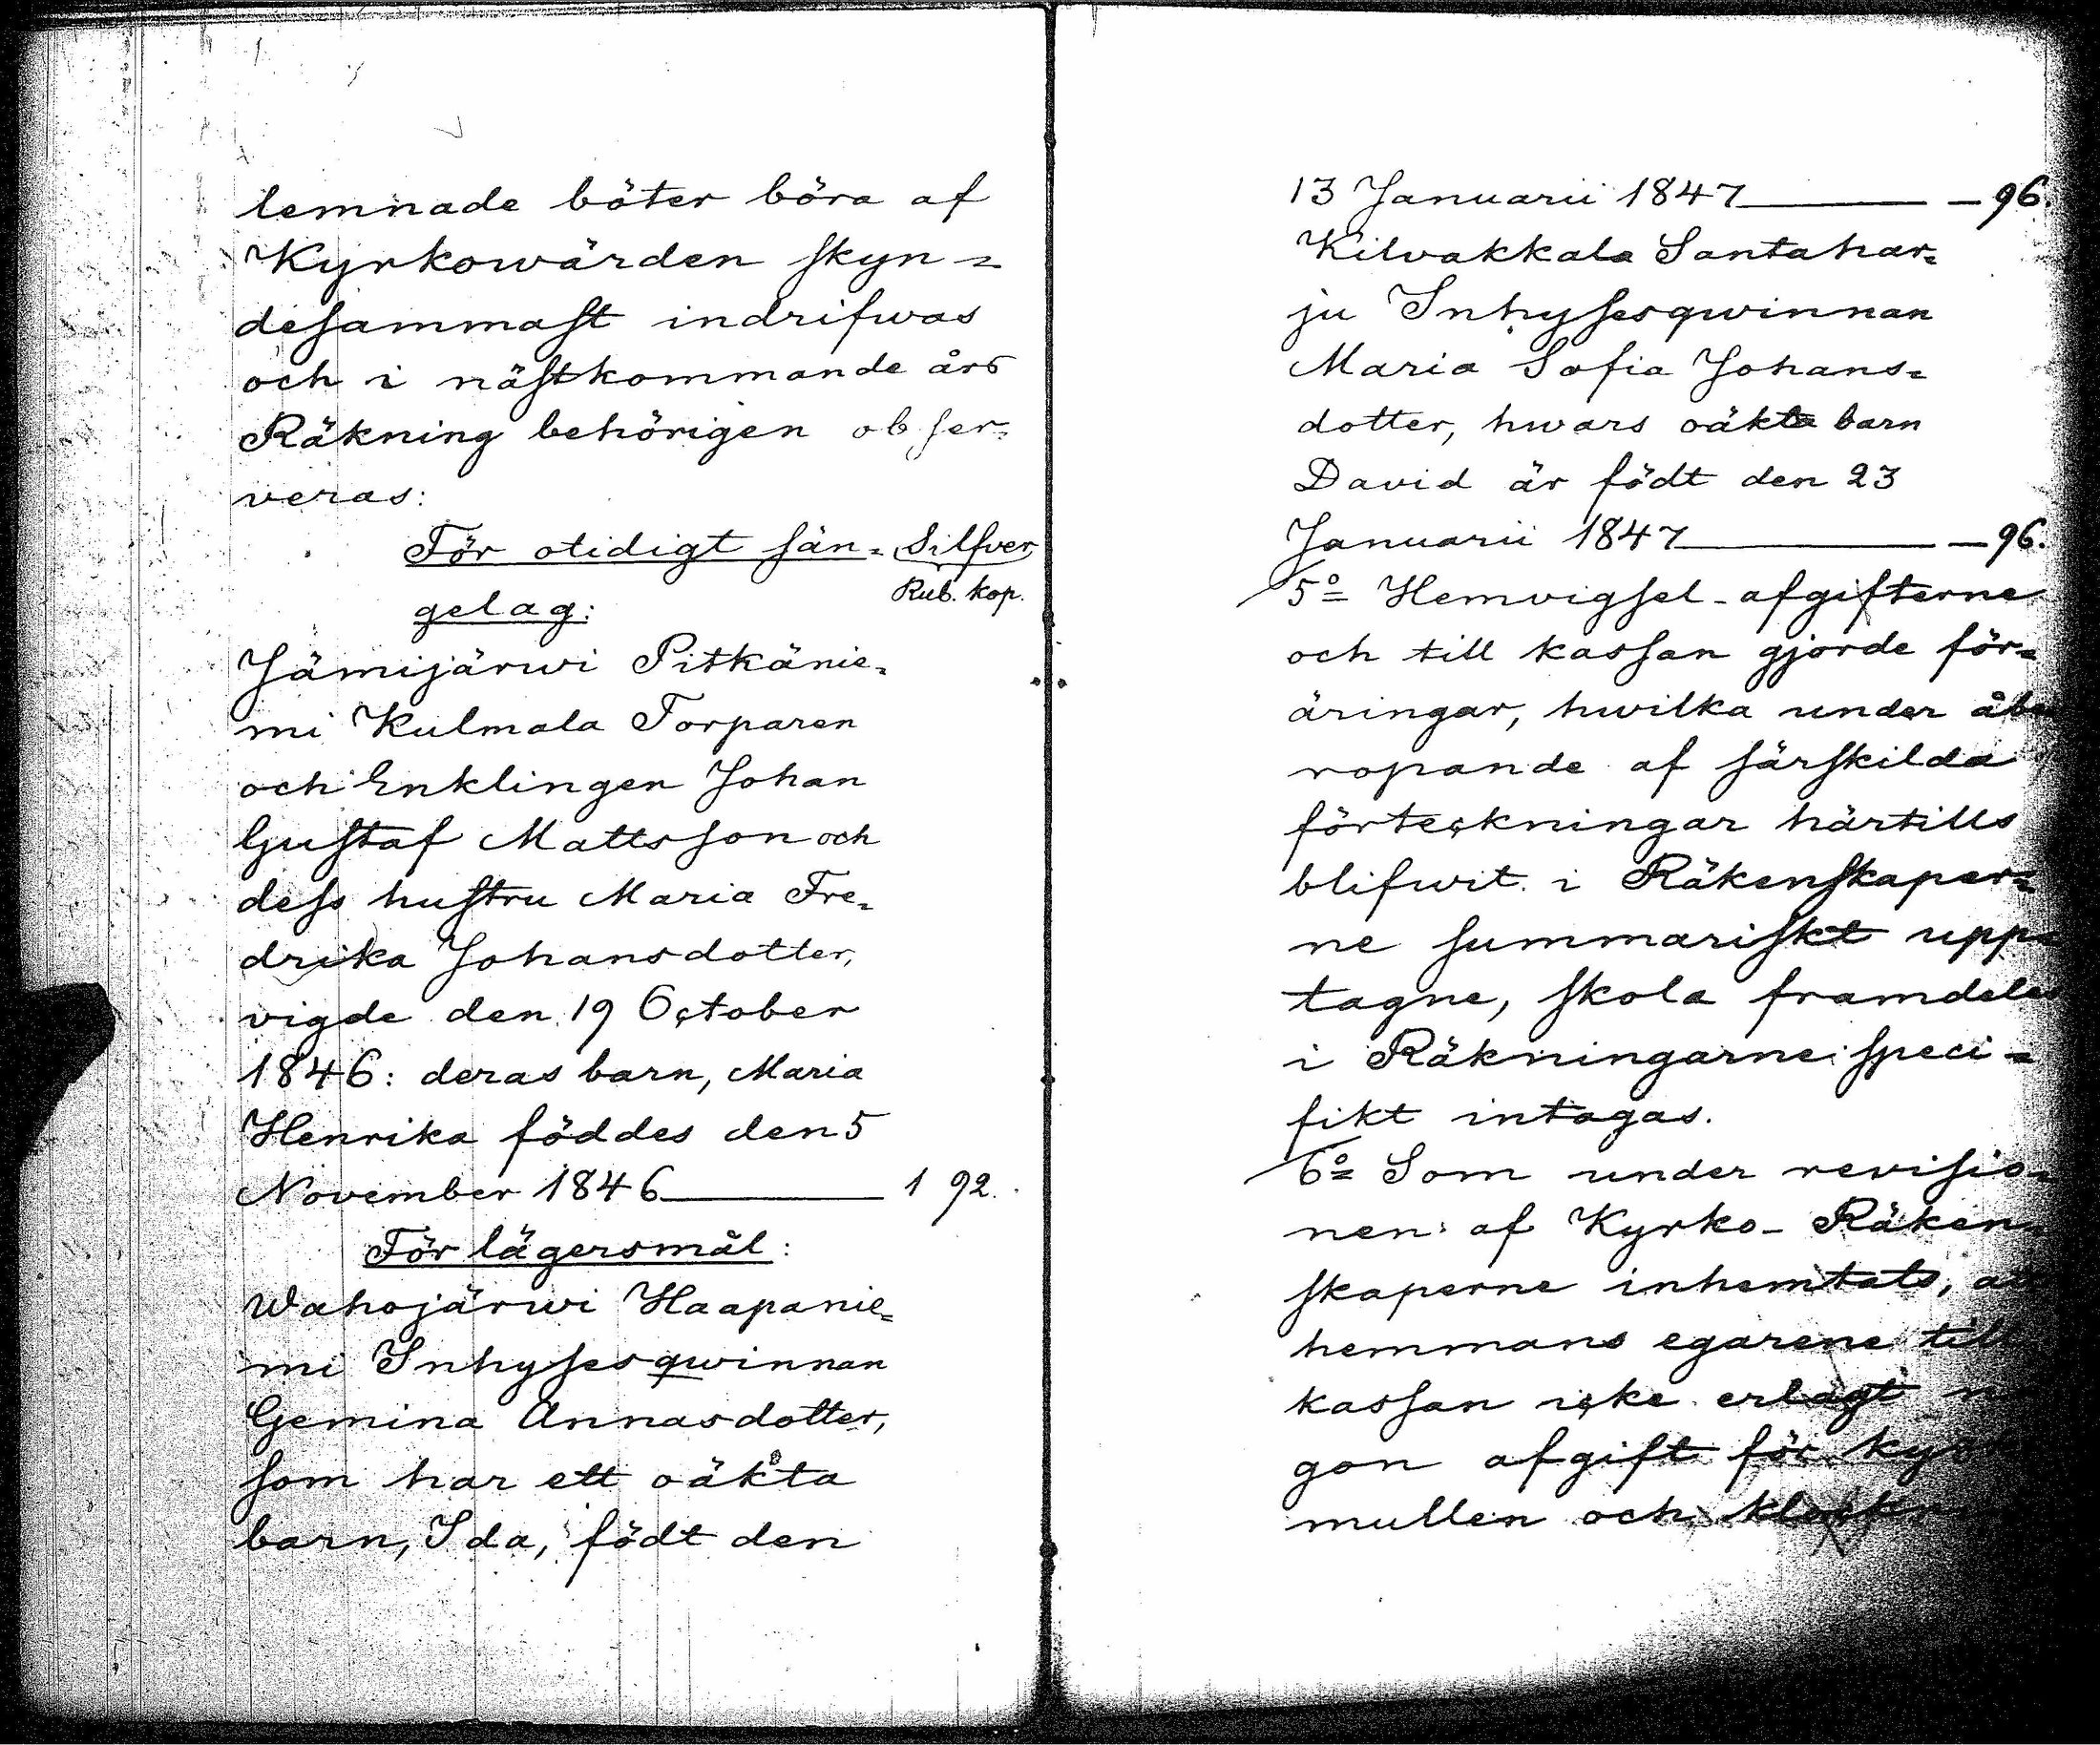 lemnade böter böra af
Kyrkowärden skyn=
desammast indrifwas
och i nästkommande års
Räkning behörigen obser=
veras:
För otidigt sän= Silfver
gelag: Rub. kop.
Jämijärwi Pitkänie=
mi Kulmala Torparen
och Enklingen Johan
Gustaf Mattsson och
dess hustru Maria Fre=
drika Johansdotter,
vigde den 19 October
1846: deras barn, Maria
Henrika föddes den 5
November 1846 1 92.
För lägersmål:
Wahojärwi Haapanie=
mi Inhysesqwinnan
Gemina Annasdotter,
som har ett oäkta
barn, Ida, födt den
13 Januarii 1847 — 96.
Kilvakkala Santahar=
ju Inhysesqwinnan
Maria Sofia Johans=
dotter, hwars oäkta barn
David är födt den 23
Januarii 1847 — 96.
5º Hemvigsel-afgifterne
och till kassan gjorde för=
äringar, hwilka under åbe
ropande af särskilda
förteckningar härtills
blifwit i Räkenskaper=
ne summariskt upp=
tagne, skola framdeles
i Räkningarne speci=
fikt intagas.
6º Som under revisio=
nen af Kyrko-Räken=
skaperne inhemtats,
hemmans egarene till
kassan icke erlagt
gon afgift för
mullen och